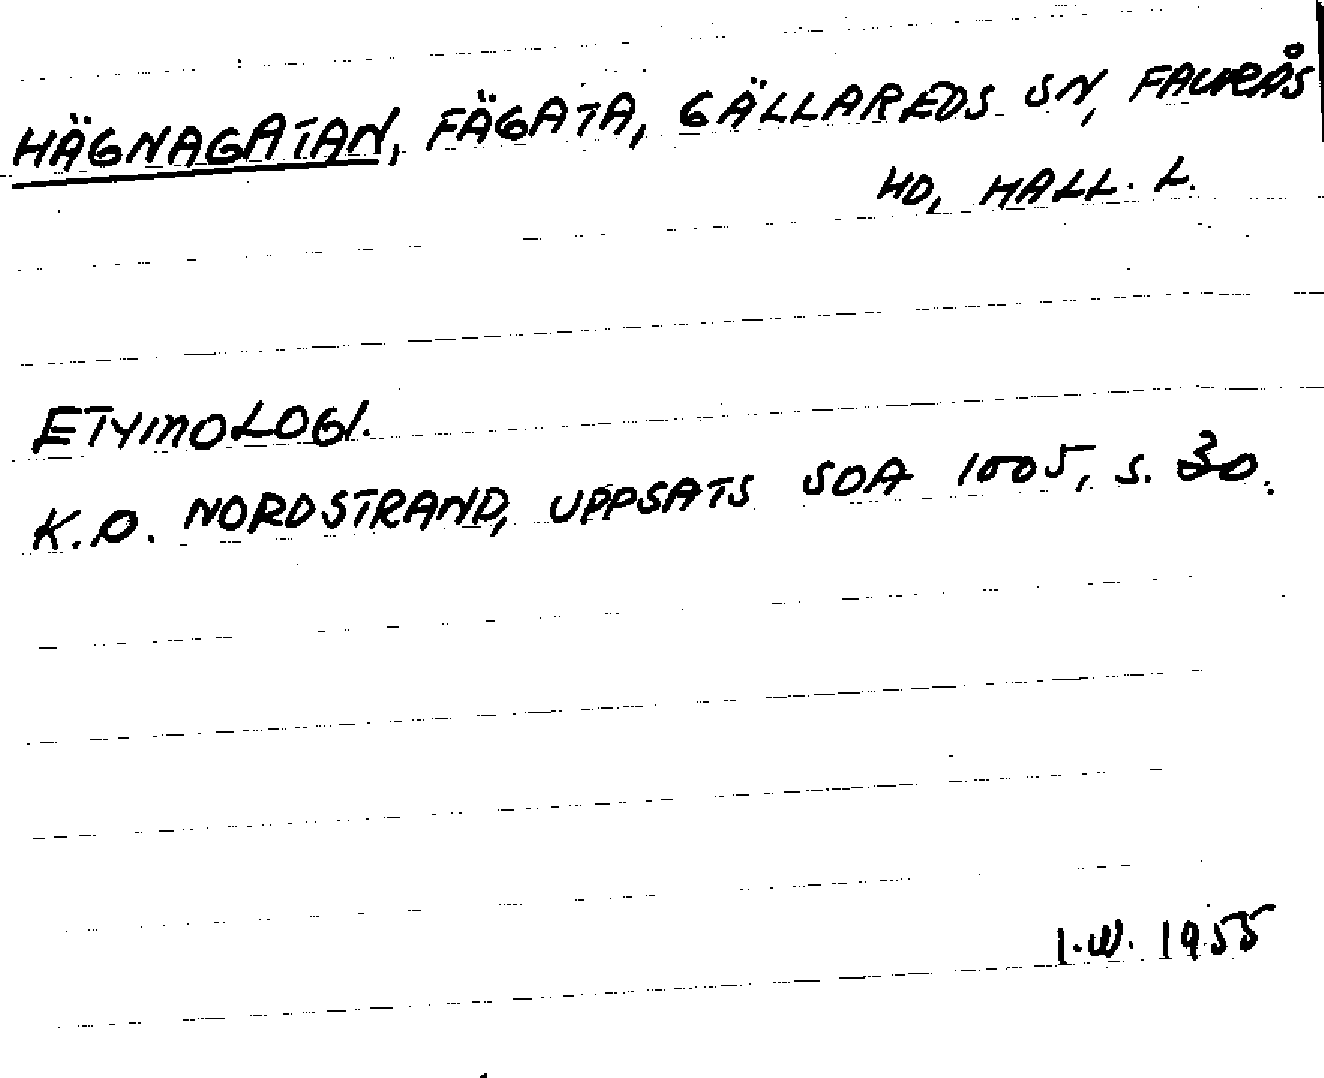 HÄGNAGATAN, FÄGATA, GÄLLAREDS SN, FAURÅS
HD, HALL. L.
ETYMOLOGI.
K.O. NORDSTRAND, UPPSATS SOA 1005, S. 30.
I.W. 1955